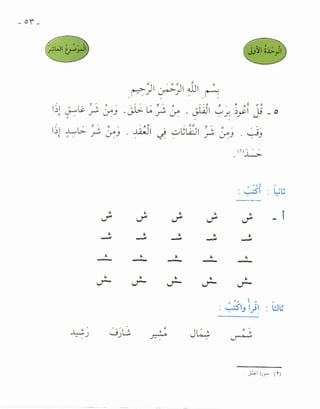 - ٥٣ -
الوحدة الأولى
الموضوع العاشر
بِسْمِ اللهِ الرَّحْمٰنِ الرَّحِيمِ
٥ - قُلْ أَعُوذُ بِرَبِّ الْفَلَقِ . مِنْ شَرِّ مَا خَلَقَ . وَمِنْ شَرِّ غَاسِقٍ إِذَا
وَقَبَ . وَمِنْ شَرِّ النَّفَّاثَاتِ فِي الْعُقَدِ . وَمِنْ شَرِّ حَاسِدٍ إِذَا
حَسَدَ(٢) .
ثانياً : أَكْتُبُ :
أ - ش ش ش ش ش
شـ شـ شـ شـ شـ
ـشـ ـشـ ـشـ ـشـ ـشـ
ـش ـش ـش ـش ـش
ثالثاً : اِقْرَأْ وَاكْتُبْ :
شَمْس شِمَال مُشْير شَارِف رَشِيد
(٢) سورة الفلق